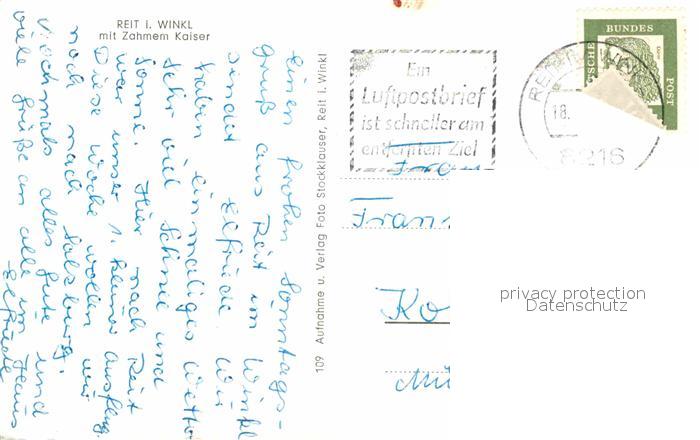 REIT i. WINKL
mit Zahmem Kaiser
Einen frohen Sonntags-
gruß aus Reit im Winkl
sendet Elfriede. Wir
haben einmaliges Wetter
sehr viel Schnee und
Sonne. Hier nach Reit
war unser 1. kleiner Ausflug.
Diese Woche wollen wir
noch nach Salzburg.
Nochmals alles Gute und
viele Grüße an alle im Haus
Elfriede
109 Aufnahme u. Verlag Foto Stockklauser, Reit i. Winkl
Ein
Luftpostbrief
ist schneller am
entfernten Ziel
REIT
18.
8216
BUNDES
POST
Frau
Fran
Ko
Mü
privacy protection
Datenschutz